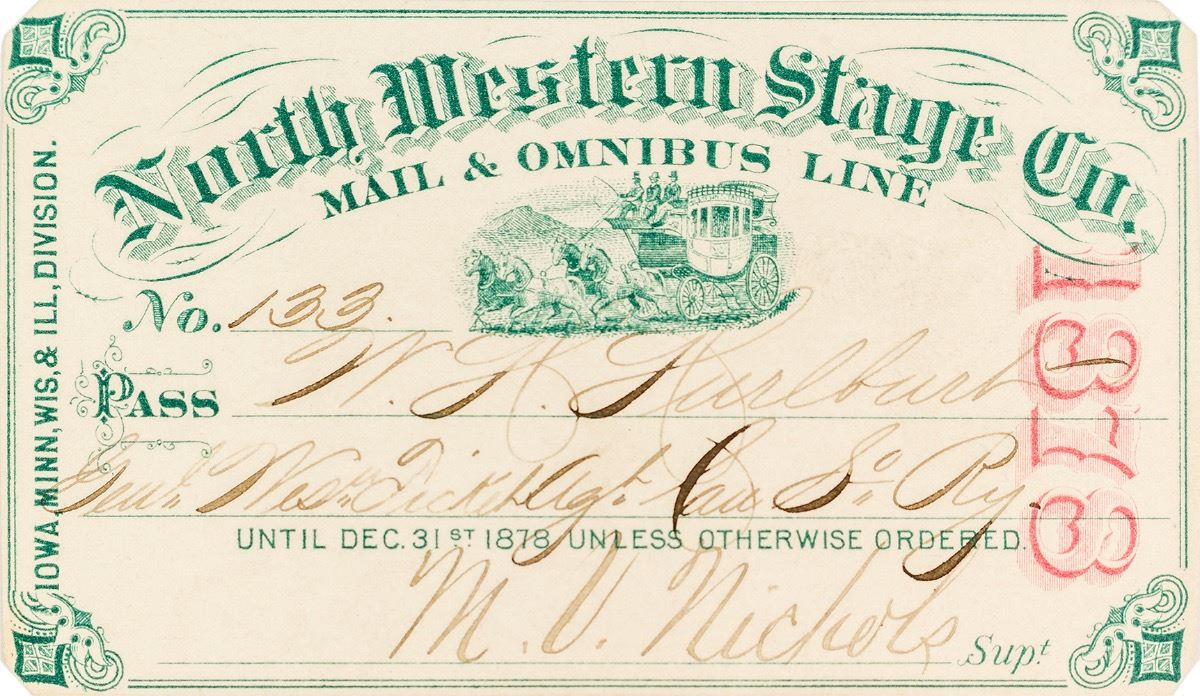 North Western Stage Co.
MAIL & OMNIBUS LINE
IOWA, MINN, WIS, & ILL, DIVISION.
No. 133.
PASS W. H. Hurlburt
Genl. Wesn. Ticket Agt. Can So. Ry.
UNTIL DEC. 31ST 1878 UNLESS OTHERWISE ORDERED.
M. V. Nichols Supt.
1878